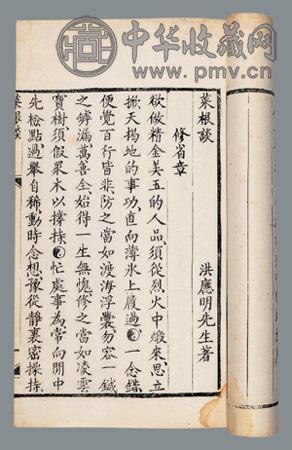 中华收藏网
www.pmv.cn
菜根談 洪應明先生著
修省章
欲做精金美玉的人品須從烈火中煅來思立
掀天揭地的事功直向薄氷上履過一念錯
便覺百行皆非防之當如渡海浮囊勿容一鍼
之罅漏萬善全始得一生無愧修之當如凌雲
寶樹須假衆木以撐持忙處事為常向閒中
先檢點過舉自稀動時念想豫從靜裏密操持
菜根談